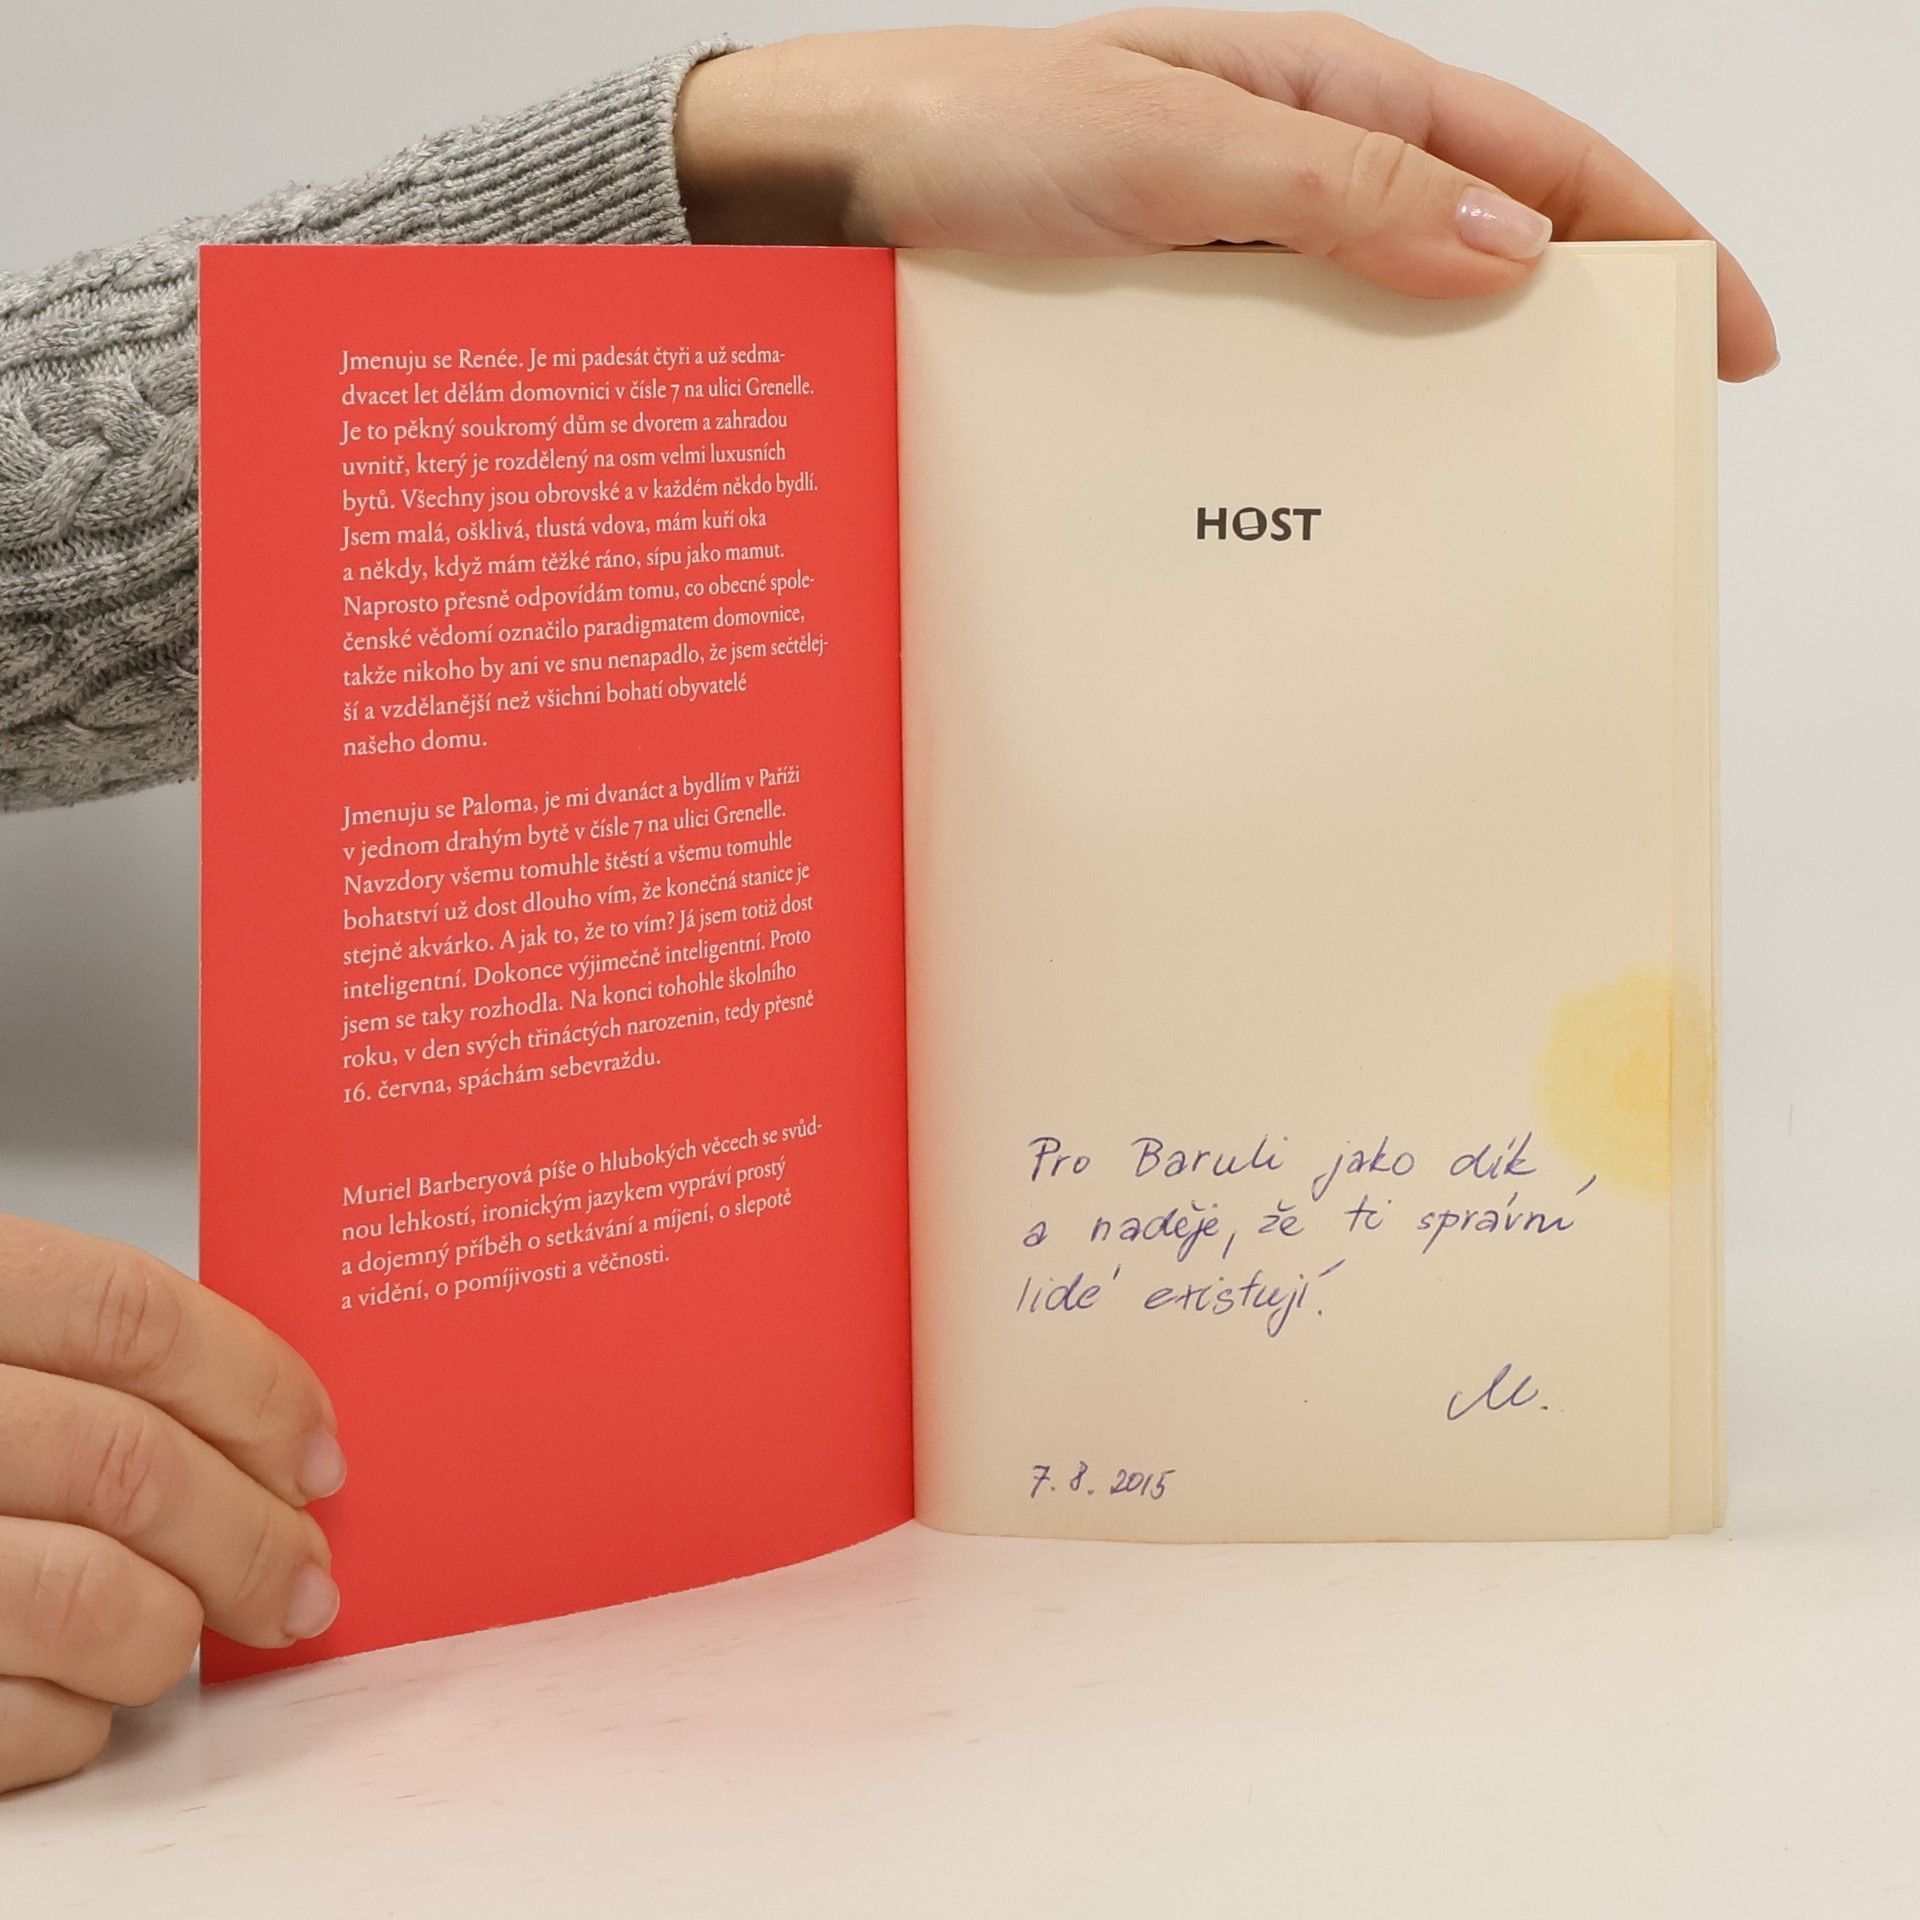 Jmenuju se Renée. Je mi padesát čtyři a už sedma-
dvacet let dělám domovnici v čísle 7 na ulici Grenelle.
Je to pěkný soukromý dům se dvorem a zahradou
uvnitř, který je rozdělený na osm velmi luxusních
bytů. Všechny jsou obrovské a v každém někdo bydlí.
Jsem malá, ošklivá, tlustá vdova, mám kuří oka
a někdy, když mám těžké ráno, sípu jako mamut.
Naprosto přesně odpovídám tomu, co obecné spole-
čenské vědomí označilo paradigmatem domovnice,
takže nikoho by ani ve snu nenapadlo, že jsem sečtělej-
ší a vzdělanější než všichni bohatí obyvatelé
našeho domu.
Jmenuju se Paloma, je mi dvanáct a bydlím v Paříži
v jednom drahým bytě v čísle 7 na ulici Grenelle.
Navzdory všemu tomuhle štěstí a všemu tomuhle
bohatství už dost dlouho vím, že konečná stanice je
stejně akvárko. A jak to, že to vím? Já jsem totiž dost
inteligentní. Dokonce výjimečně inteligentní. Proto
jsem se taky rozhodla. Na konci tohohle školního
roku, v den svých třináctých narozenin, tedy přesně
16. června, spáchám sebevraždu.
Muriel Barberyová píše o hlubokých věcech se svůd-
nou lehkostí, ironickým jazykem vypráví prostý
a dojemný příběh o setkávání a míjení, o slepotě
a vidění, o pomíjivosti a věčnosti.
HOST
Pro Baruli jako dík
a naděje, že ti správní
lidé existují.
M.
7. 8. 2015